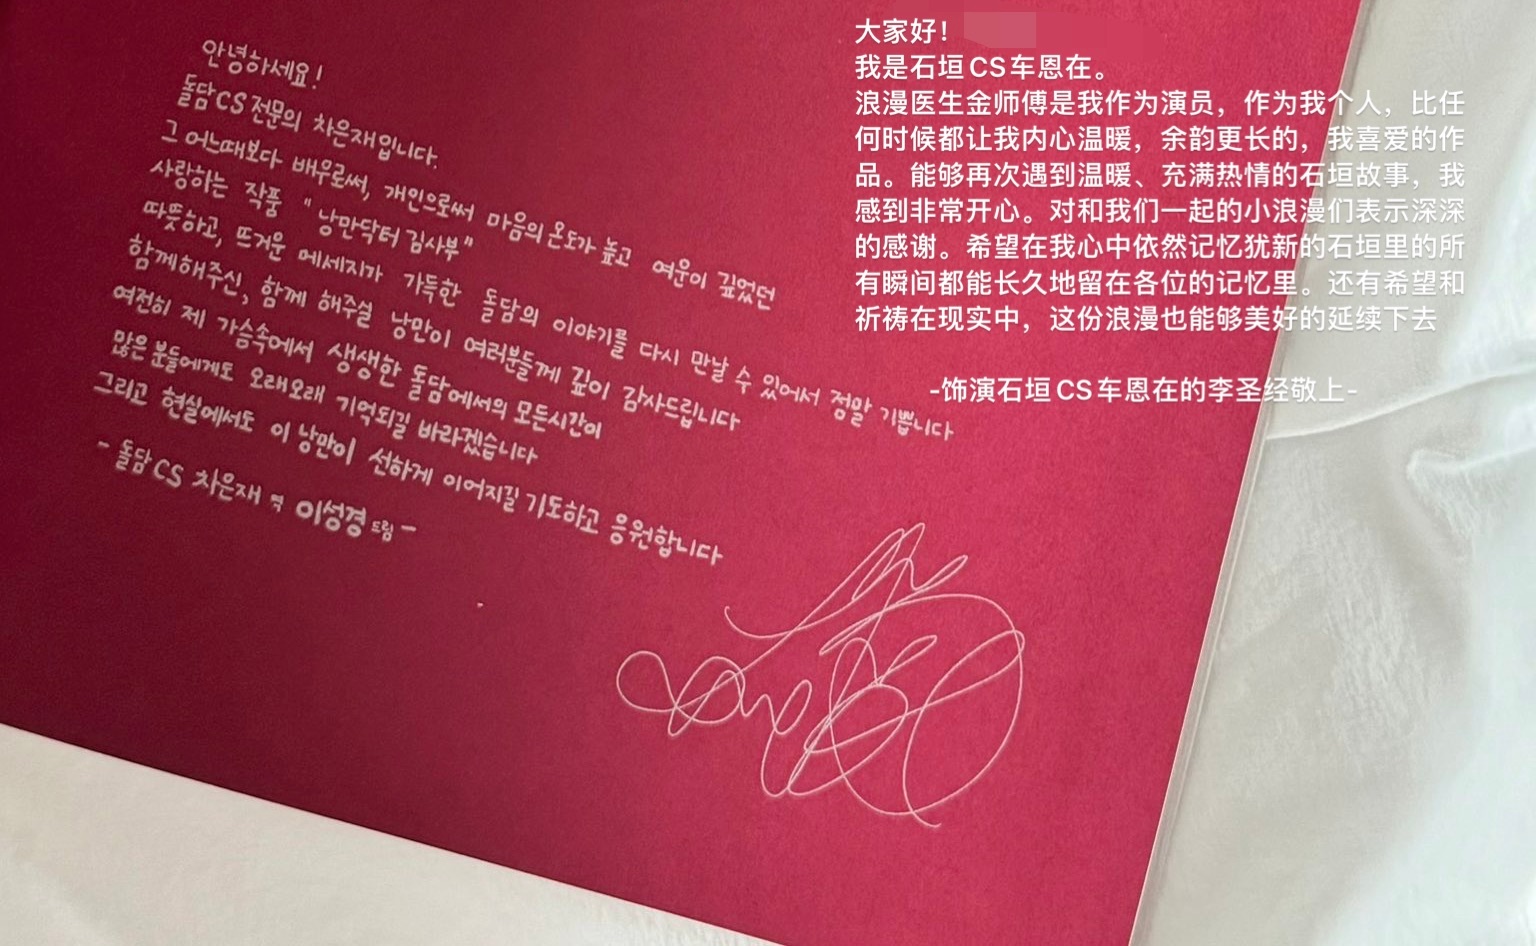 안녕하세요!
돌담CS전문의 차은재입니다.
그 어느때보다 배우로써, 개인으로써 마음의 온도가 높고 여운이 깊었던
사랑하는 작품 "낭만닥터 김사부"
따뜻하고, 뜨거운 메세지가 가득한 돌담의 이야기를 다시 만날 수 있어서 정말 기쁩니다
함께해주신, 함께 해주실 낭만이 여러분들께 깊이 감사드립니다
여전히 제 가슴속에서 생생한 돌담에서의 모든시간이
많은 분들에게도 오래오래 기억되길 바라겠습니다
그리고 현실에서도 이 낭만이 선하게 이어지길 기도하고 응원합니다
- 돌담CS 차은재 역 이성경 드림 -
大家好！
我是石垣CS车恩在。
浪漫医生金师傅是我作为演员，作为我个人，比任
何时候都让我内心温暖，余韵更长的，我喜爱的作
品。能够再次遇到温暖、充满热情的石垣故事，我
感到非常开心。对和我们一起的小浪漫们表示深深
的感谢。希望在我心中依然记忆犹新的石垣里的所
有瞬间都能长久地留在各位的记忆里。还有希望和
祈祷在现实中，这份浪漫也能够美好的延续下去
-饰演石垣CS车恩在的李圣经敬上-